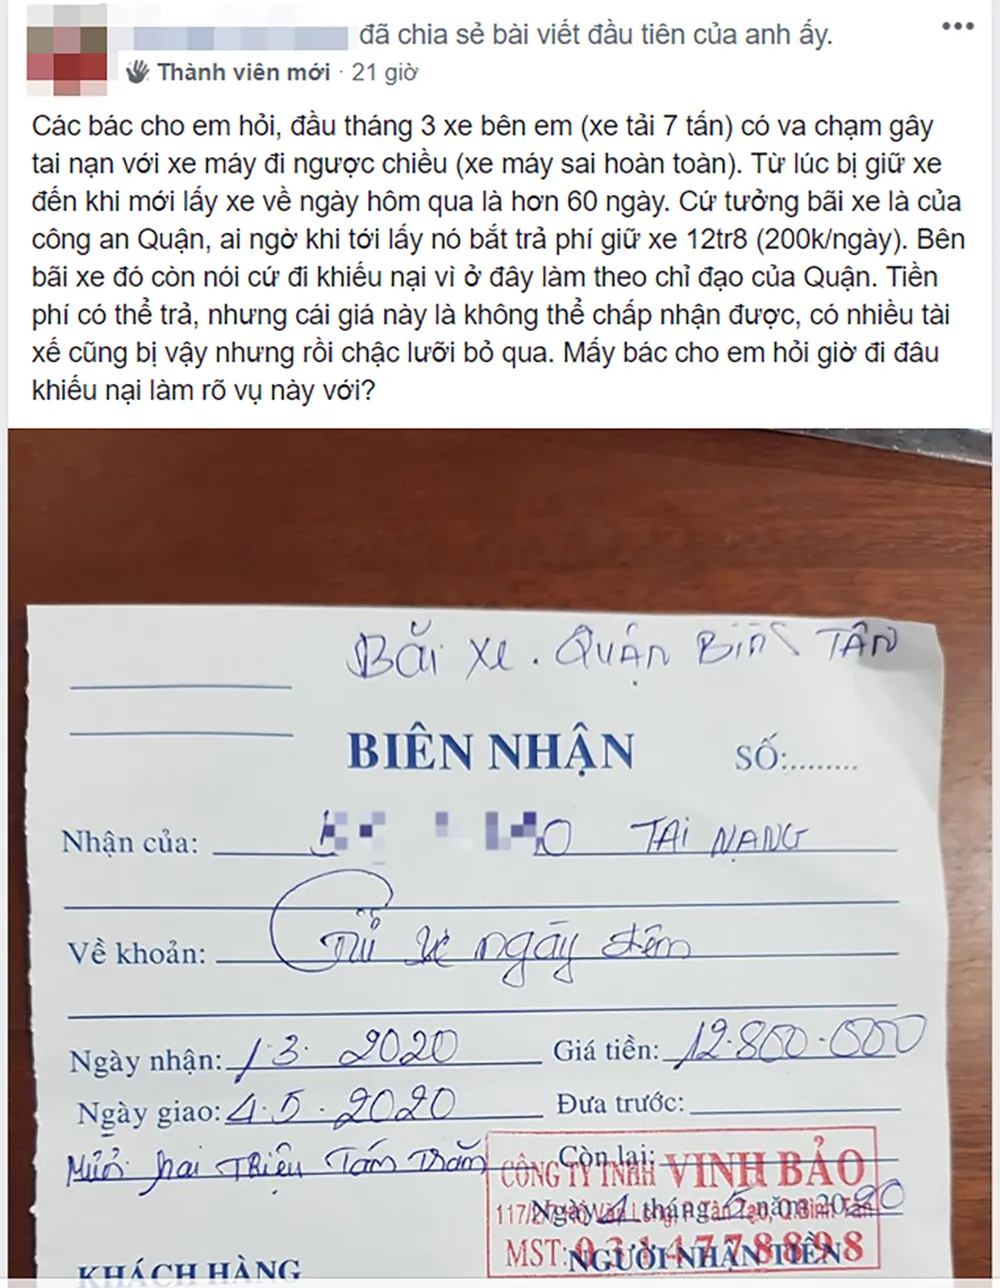 đã chia sẻ bài viết đầu tiên của anh ấy.
Thành viên mới · 21 giờ
Các bác cho em hỏi, đầu tháng 3 xe bên em (xe tải 7 tấn) có va chạm gây
tai nạn với xe máy đi ngược chiều (xe máy sai hoàn toàn). Từ lúc bị giữ xe
đến khi mới lấy xe về ngày hôm qua là hơn 60 ngày. Cứ tưởng bãi xe là của
công an Quận, ai ngờ khi tới lấy nó bắt trả phí giữ xe 12tr8 (200k/ngày). Bên
bãi xe đó còn nói cứ đi khiếu nại vì ở đây làm theo chỉ đạo của Quận. Tiền
phí có thể trả, nhưng cái giá này là không thể chấp nhận được, có nhiều tài
xế cũng bị vậy nhưng rồi chậc lưỡi bỏ qua. Mấy bác cho em hỏi giờ đi đâu
khiếu nại làm rõ vụ này với?
Bãi xe. QUẬN BÌNH TÂN
BIÊN NHẬN SỐ:........
Nhận của: TAI NANG
Về khoản: xe ngày đêm
Ngày nhận: 1.3.2020 Giá tiền: 12.800.000
Ngày giao: 4.5.2020 Đưa trước:
Mười hai Triệu Tám Trăm Còn lại:
CÔNG TY TNHH VINH BẢO
Ngày 4 tháng 5 năm 2020
Tân Tạo, Q.Bình Tân
MST:
NGƯỜI NHẬN TIỀN
KHÁCH HÀNG